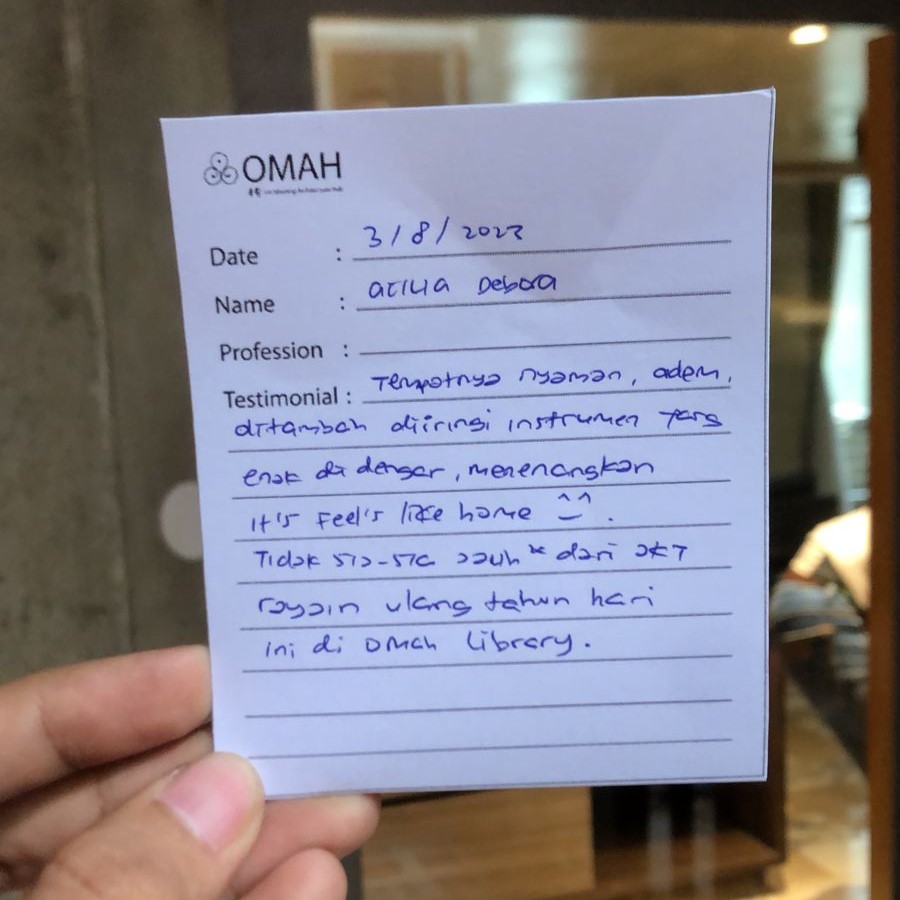 OMAH
Date : 3/8/2023
Name : Atilia Debora
Profession :
Testimonial : Tempatnya nyaman, adem,
ditambah diiringi instrumen yang
enak di dengar, menenangkan
it's Feel's like home ^^ .
Tidak sia-sia jauh" dari JKT
rayain ulang tahun hari
ini di OMAH Library.